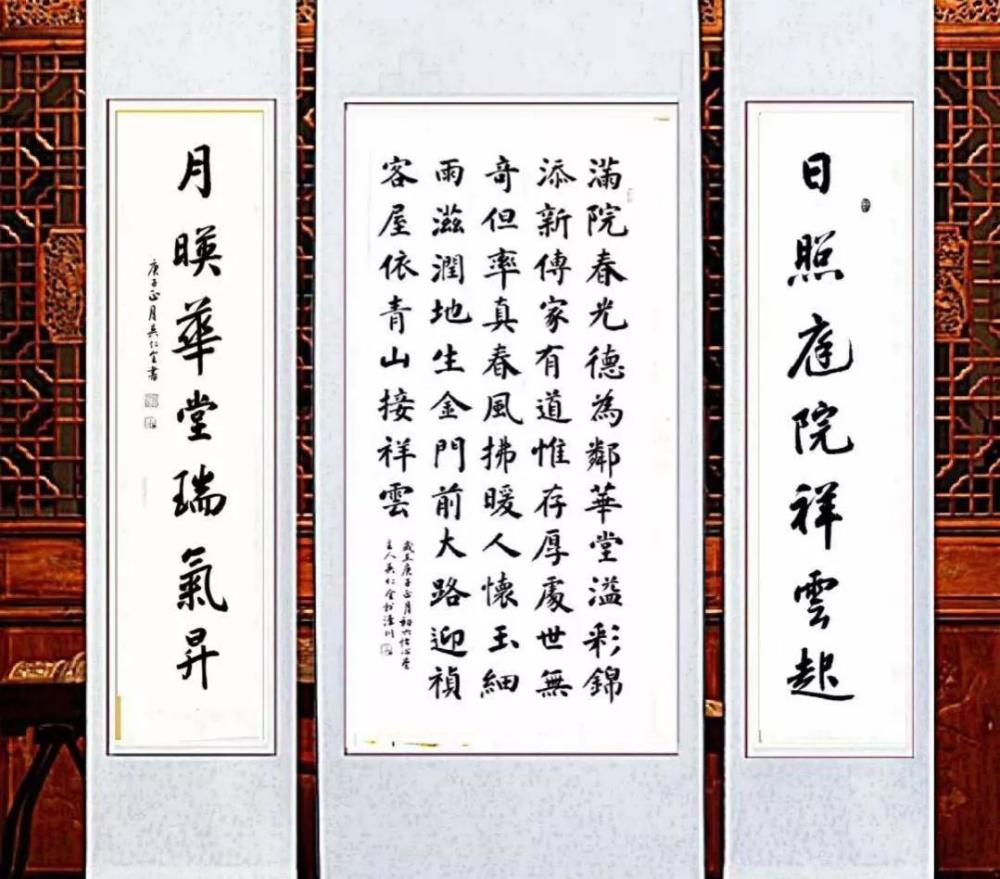 日照庭院祥雲起
滿院春光德為鄰華堂溢彩錦
添新傳家有道惟存厚處世無
奇但率真春風拂暖人懷玉細
雨滋潤地生金門前大路迎禎
客屋依青山接祥雲
歲在庚子正月初六怡心堂
主人吳仁金書
月暎華堂瑞氣昇
庚子正月吳仁金書